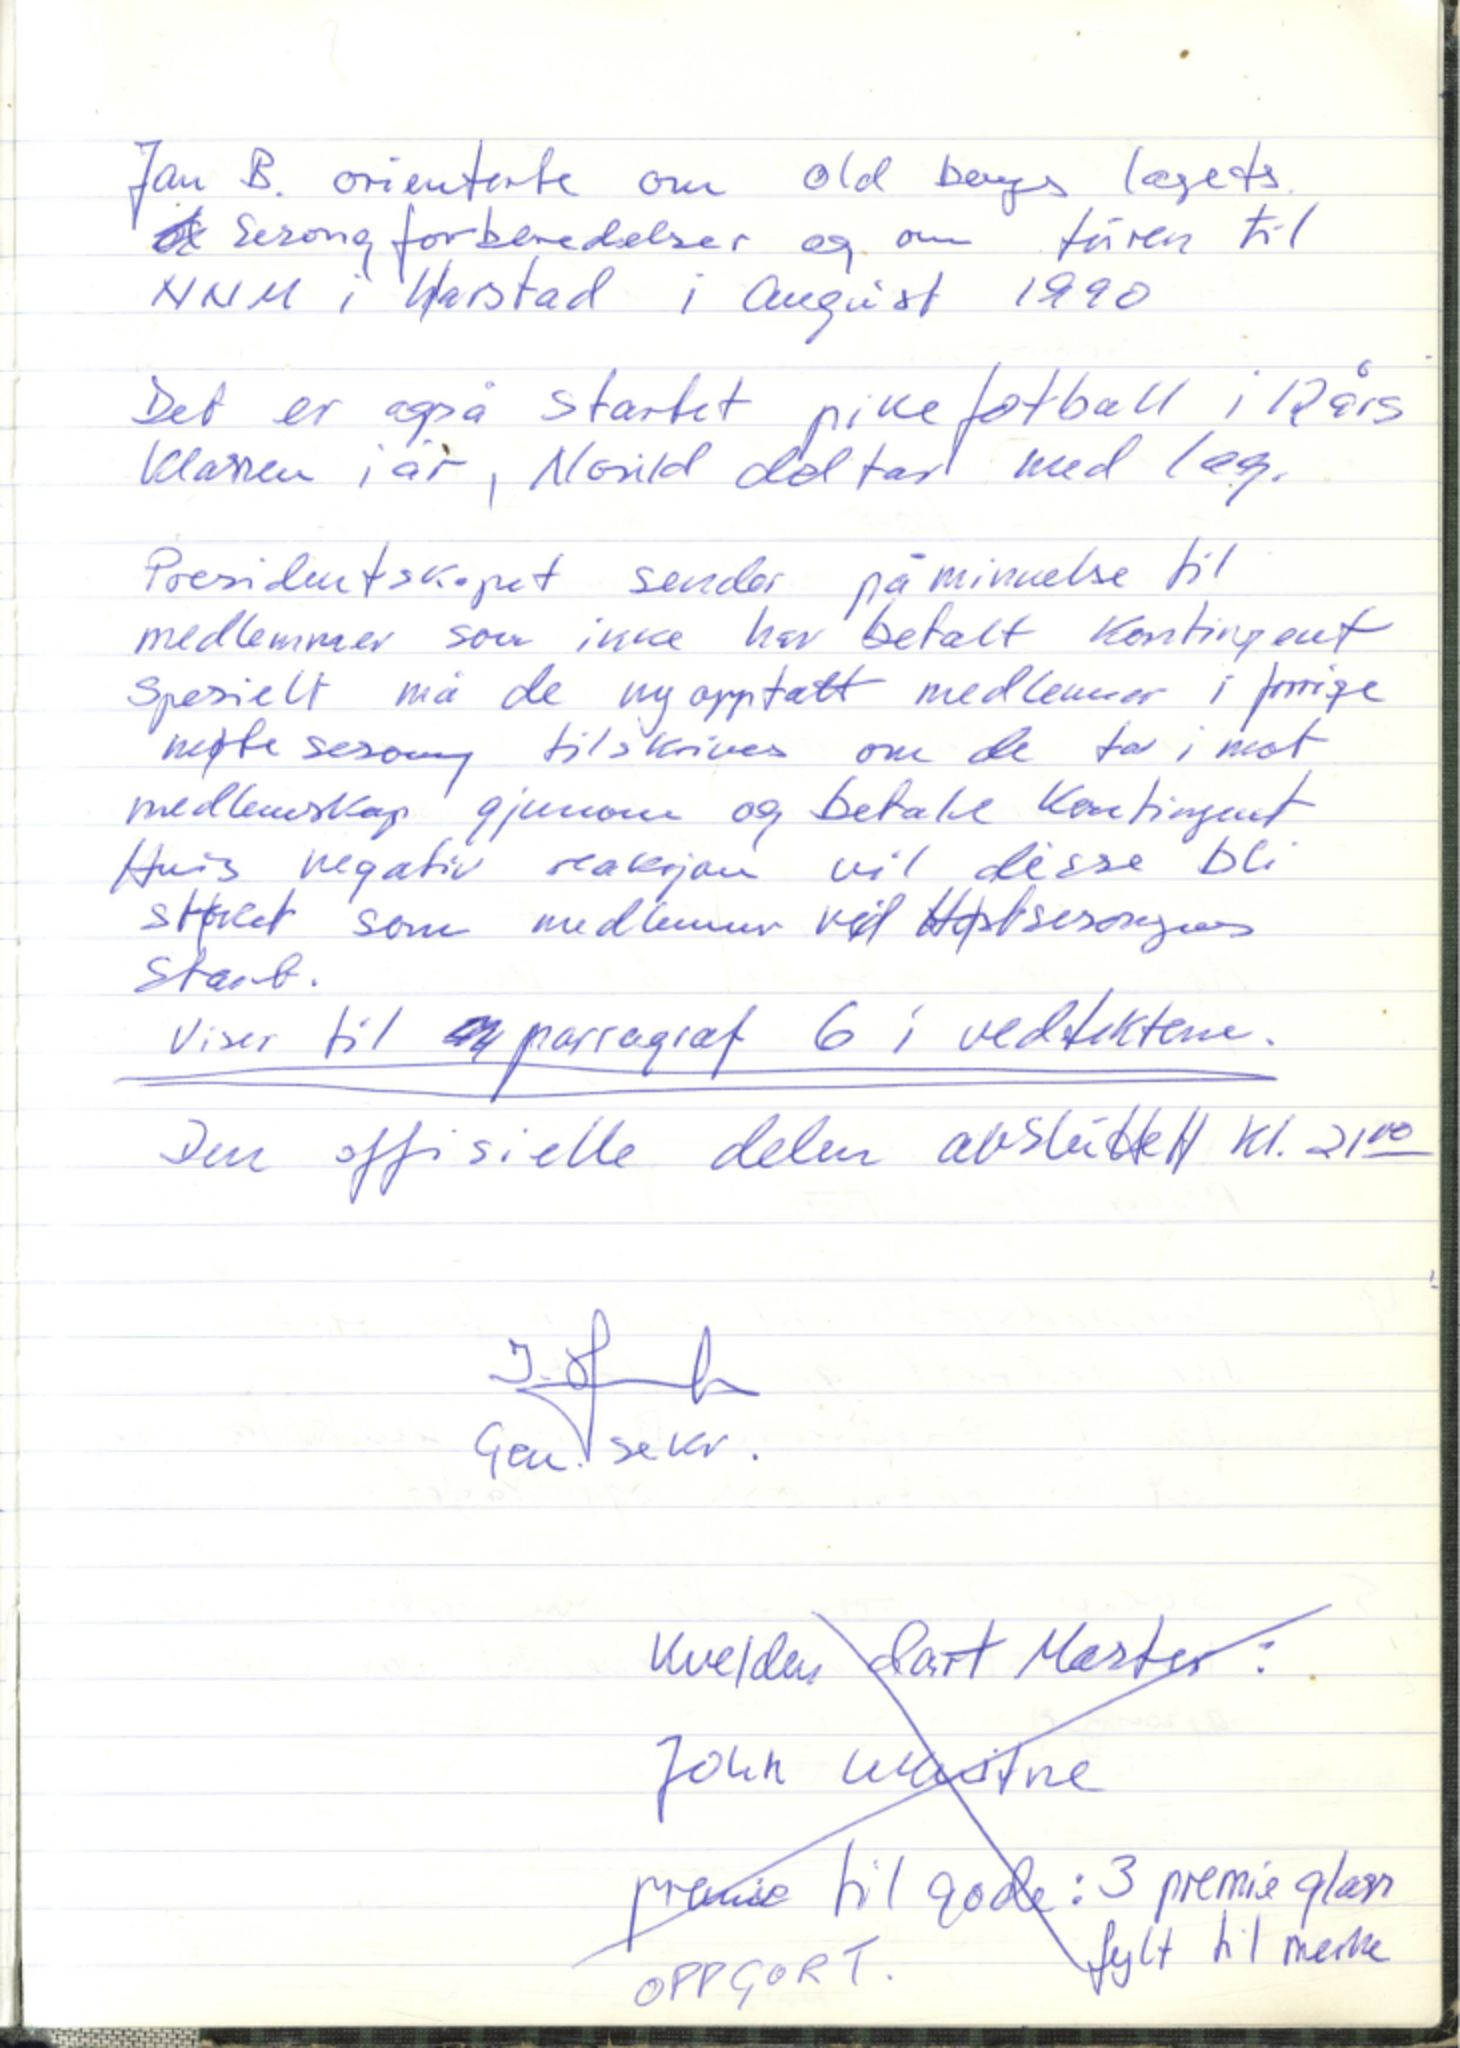 Jan B. orienterte om old boys lagets
sesong forberedelser og om turen til
NNM i Harstad i August 1990
Det er også startet pike fotball i 12 års
klassen i år, Morild deltar med lag.
Presidentskapet sender påminnelse til
medlemmer som ikke har betalt kontingent
spesielt må de ny opptatt medlemmer i forrige
møte sesong tilskrives om de tar i mot
medlemskap gjennom og betale kontingent
Hvis negativ reaksjon vil disse bli
strøket som medlemmer ved Høstsesongens
start.
Viser til parragraf 6 i vedtektene.
Den offisielle delen avsluttett kl. 21 00
Gen. sekr.
Kvelden dart Master:
John
premie til gode: 3 premie glass
fylt til merke
OPPGORT.